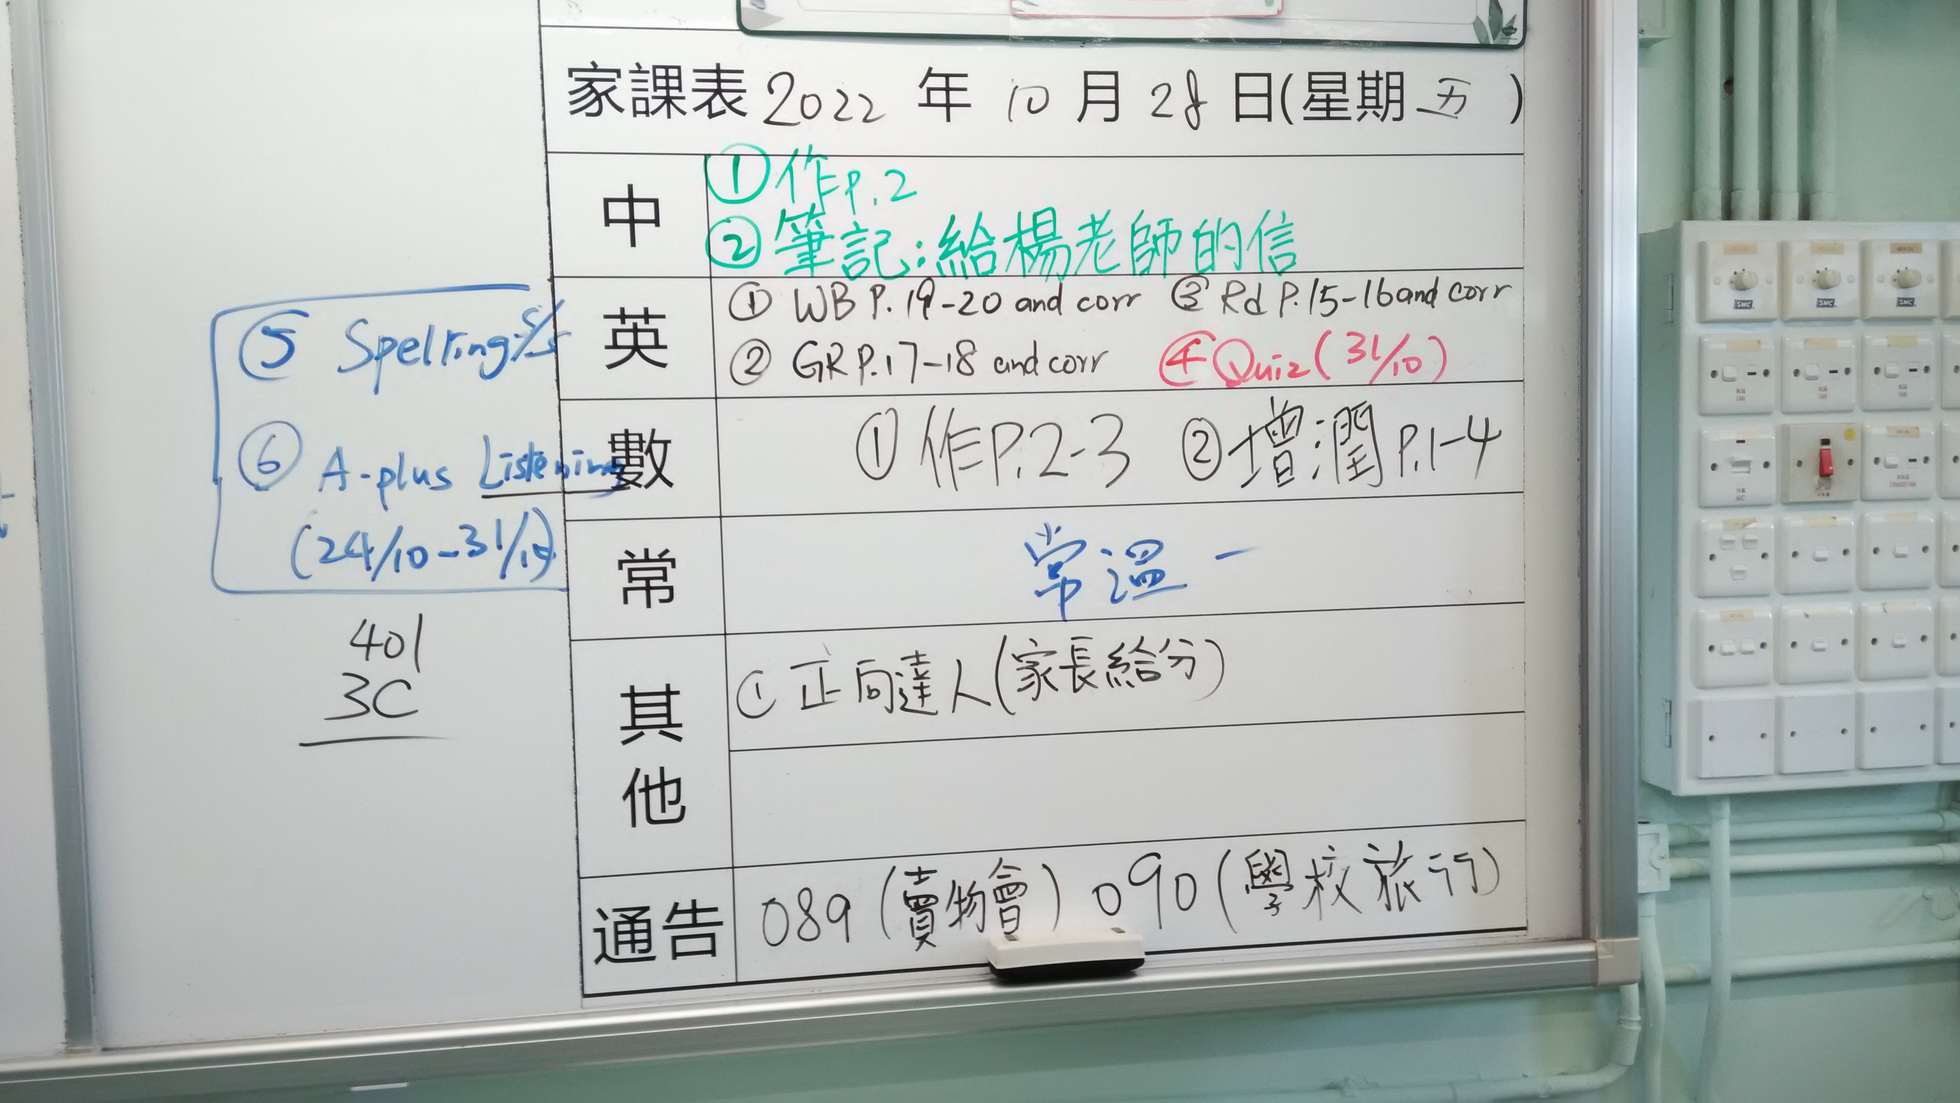 家課表 2022 年 10 月 28 日(星期 五 )
中
① 作P.2
② 筆記:給楊老師的信
英
① WB P.19-20 and corr ③ Rd P.15-16 and corr
② GR P.17-18 and corr ④ Quiz (31/10)
⑤ Spelling
⑥ A-plus Listening
(24/10-31/10)
數
① 作P.2-3 ② 增潤P.1-4
常
常溫一
其他
① 正向達人(家長給分)
通告
089 (賣物會) 090 (學校旅行)
401
3C